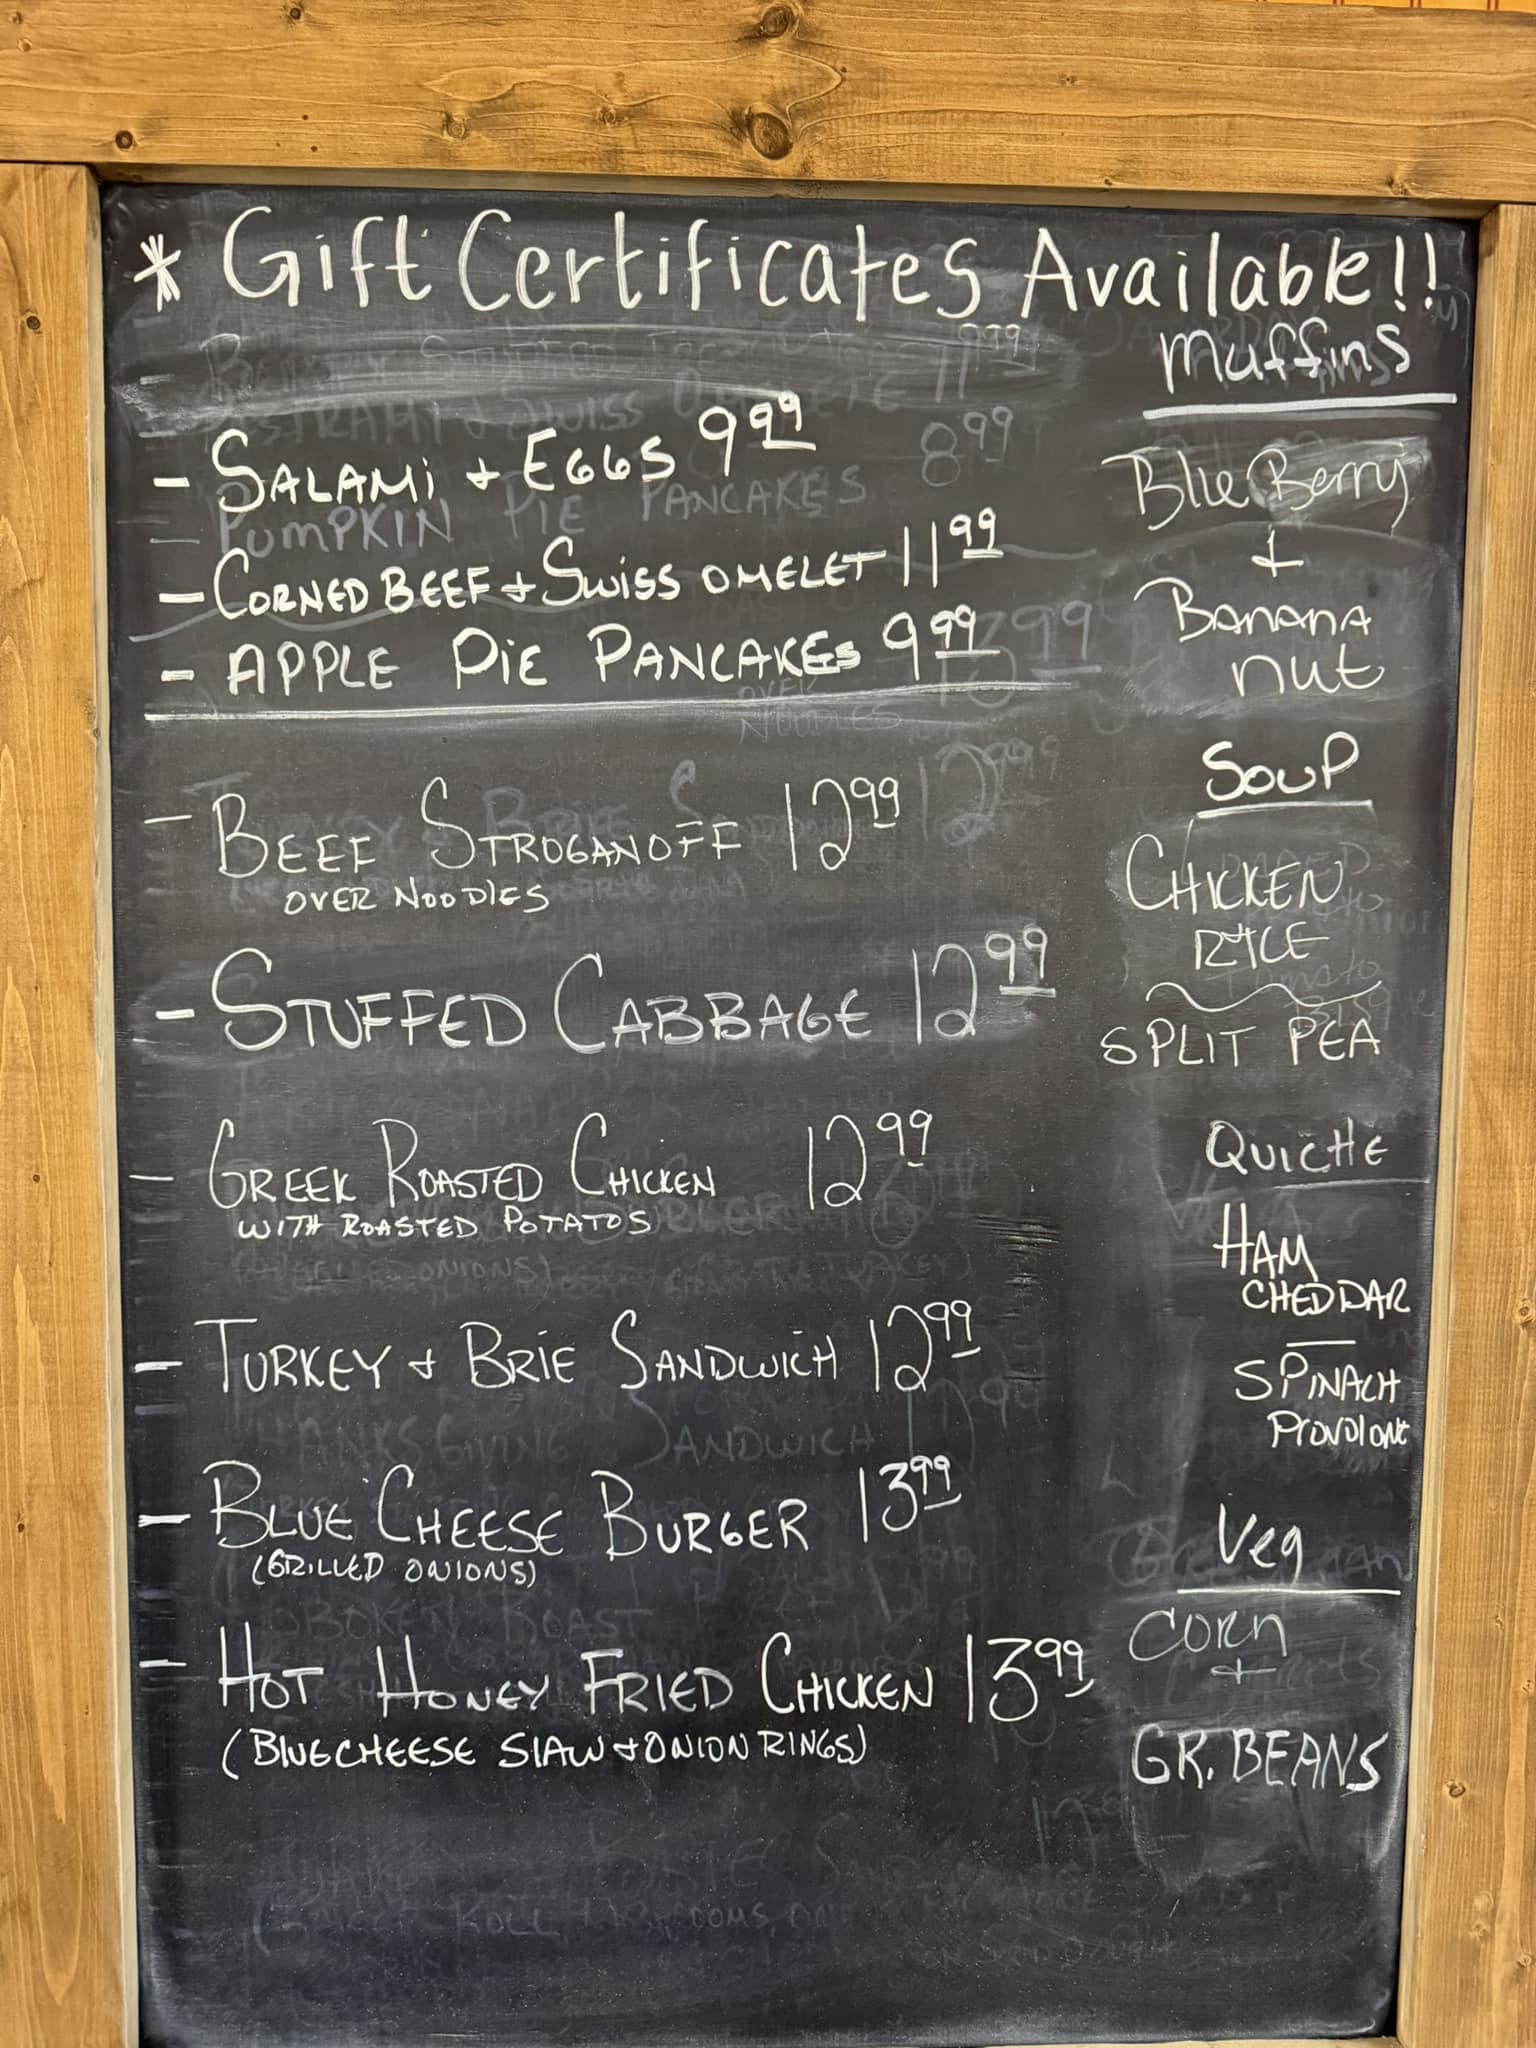 * Gift Certificates Available!!
- SALAMi + EGGS 9.99
- CORNED BEEF + SWISS OMELET 11.99
- APPLE PIE PANCAKES 9.99
- BEEF STROGANOFF 12.99
OVER NOODLES
- STUFFED CABBAGE 12.99
- GREEK ROASTED CHICKEN 12.99
WITH ROASTED POTATOS
- TURKEY + BRIE SANDWICH 12.99
- BLUE CHEESE BURGER 13.99
(GRILLED ONIONS)
- HOT HONEY FRIED CHICKEN 13.99
(BLUECHEESE SLAW + ONION RINGS)
Muffins
Blue Berry
+
BANANA
NUT
SOUP
CHICKEN
RICE
SPLIT PEA
QUICHE
HAM
CHEDDAR
—
SPINACH
PROVOLONE
Veg
CORN
+
GR. BEANS